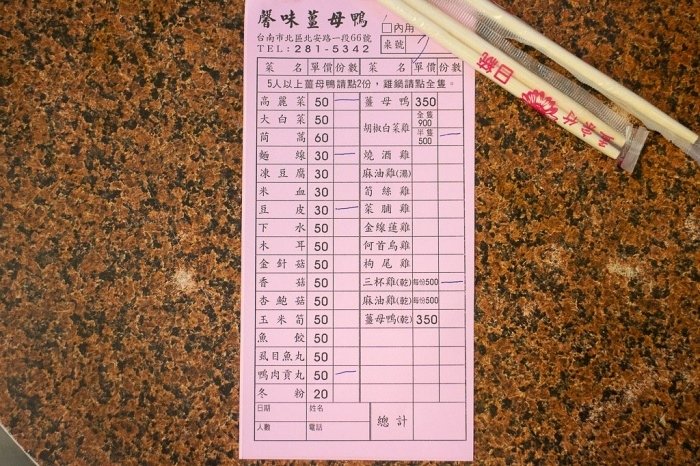 馨味薑母鴨
台南市北區北安路一段66號
TEL:281-5342
內用
桌號
菜名 單價 份數 菜名 單價 份數
5人以上薑母鴨請點2份，雞鍋請點全隻。
高麗菜 50 薑母鴨 350
大白菜 50 胡椒白菜雞 全隻 900
茼蒿 60 半隻 500
麵線 30 燒酒雞
凍豆腐 30 麻油雞(湯)
米血 30 筍絲雞
豆皮 30 菜脯雞
下水 50 金線蓮雞
木耳 50 何首烏雞
金針菇 50 枸尾雞
香菇 50 三杯雞(乾) 每份500
杏鮑菇 50 麻油雞(乾) 每份500
玉米筍 50 薑母鴨(乾) 350
魚餃 50
虱目魚丸 50
鴨肉貢丸 50
冬粉 20
日期 姓名 總計
人數 電話